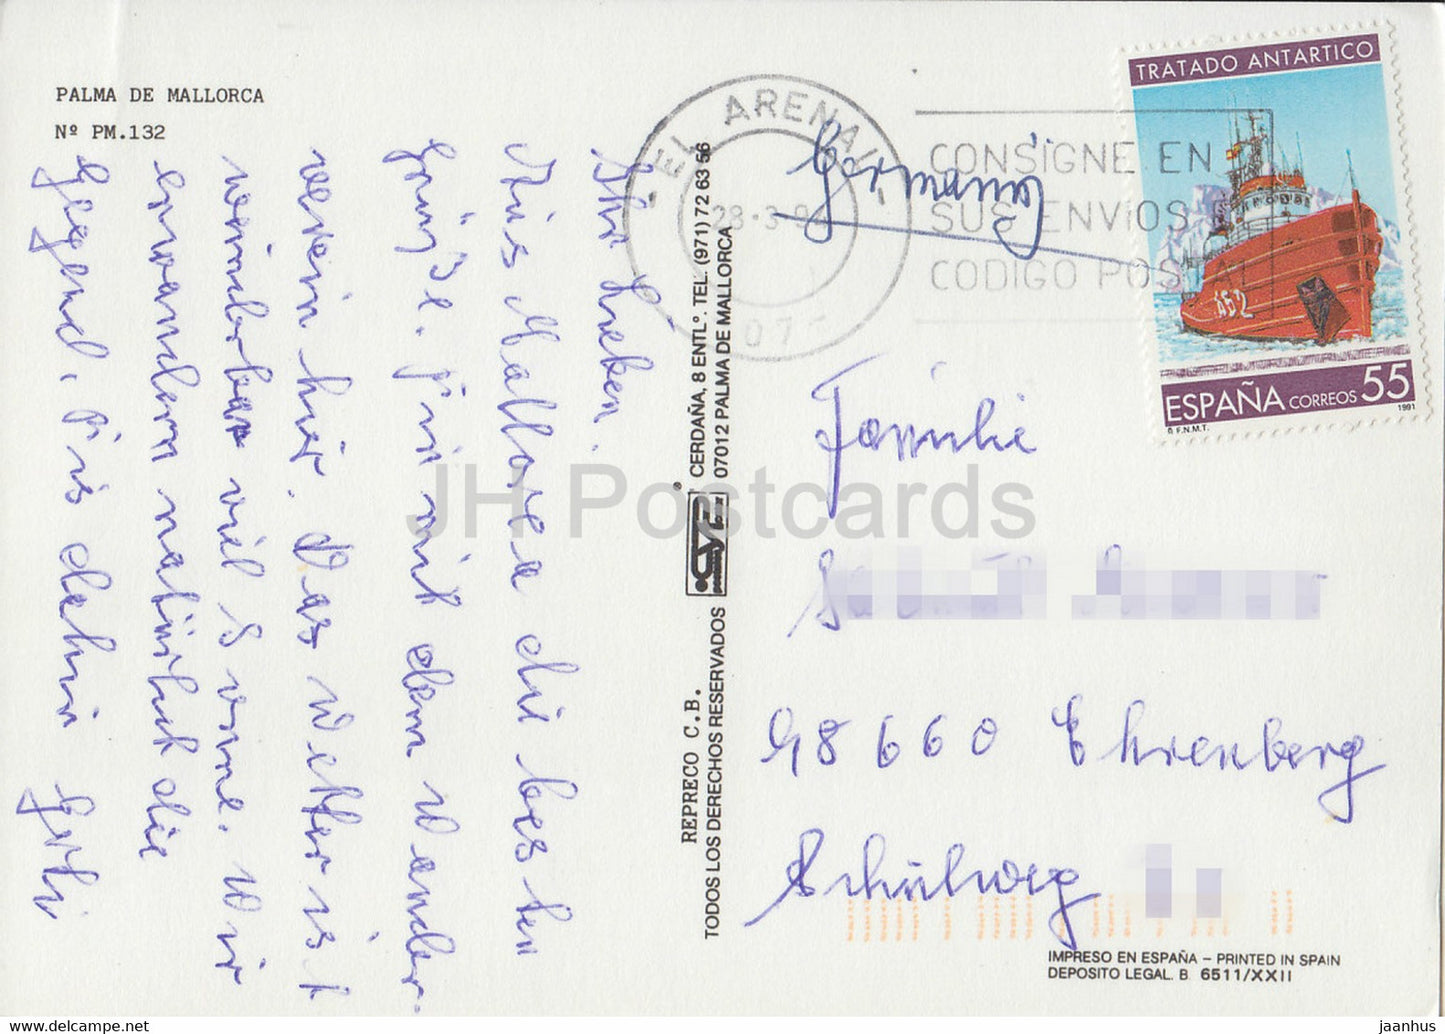 PALMA DE MALLORCA
Nº PM.132
Ihr Lieben.
Aus Mallorca die besten
Grüße. Bin mit dem Wander-
verein hier. Das Wetter ist
wunderbar viel Sonne. Wir
erwandern natürlich die
Gegend. Bis dahin
REPRECO C.B.
TODOS LOS DERECHOS RESERVADOS
CERDAÑA, 8 ENTLº. TEL. (971) 72 63 56
07012 PALMA DE MALLORCA
EL ARENAL
28-3-94
07
CONSIGNE EN
SUS ENVIOS
CODIGO POSTAL
Germany
TRATADO ANTARTICO
A52
ESPAÑA CORREOS 55
F.N.M.T.
1991
Familie
98660 Ehrenberg
Schulweg
IMPRESO EN ESPAÑA - PRINTED IN SPAIN
DEPOSITO LEGAL. B 6511/XXII
JH Postcards
www.delcampe.net
jaanhus